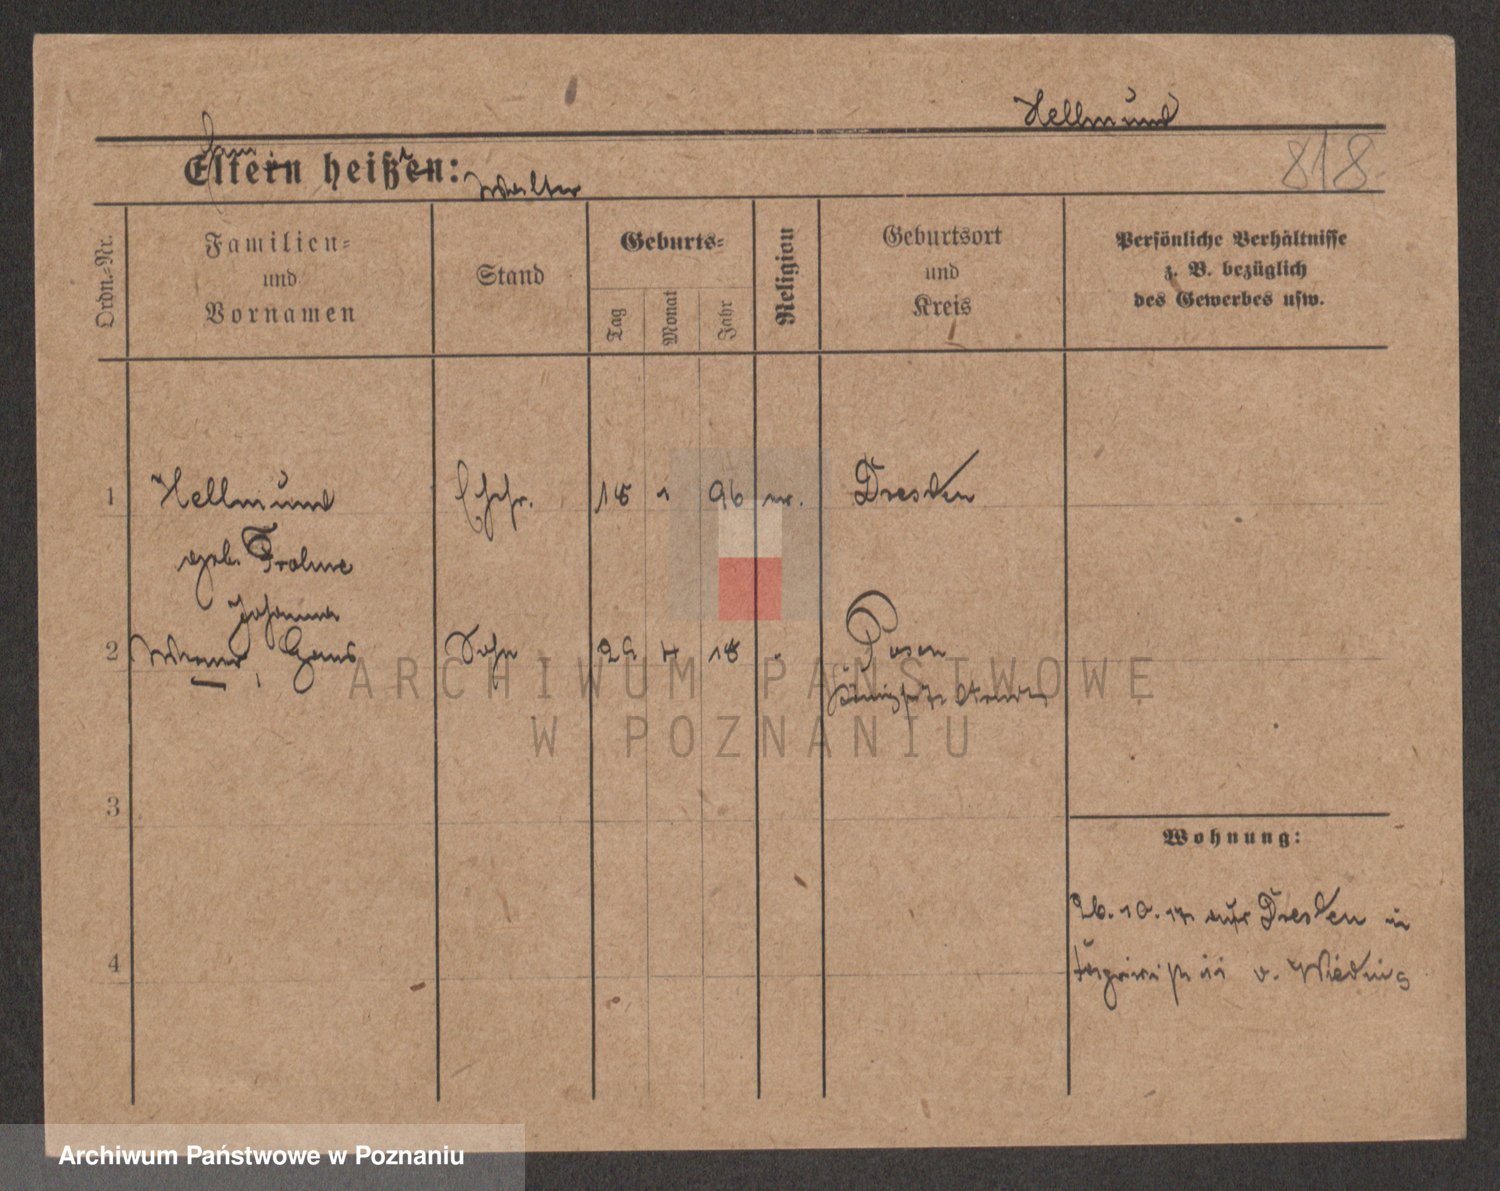 Hellmund
818
Eltern heißen:
Walter
Ordn.-Nr.
Familien-
und
Vornamen
Stand
Geburts-
Tag
Monat
Jahr
Religion
Geburtsort
und
Kreis
Persönliche Verhältnisse
z. B. bezüglich
des Gewerbes usw.
1
Hellmund
Ehefr.
15 1 96
Dresden
geb. Frohne
Johanna
2
Werner, Hans
Sohn
4 18
Posen
3
Wohnung:
26. 10. 17 aus Dresden in
4
v.
ARCHIWUM PAŃSTWOWE
W POZNANIU
Archiwum Państwowe w Poznaniu